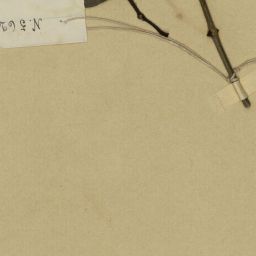 N. 562